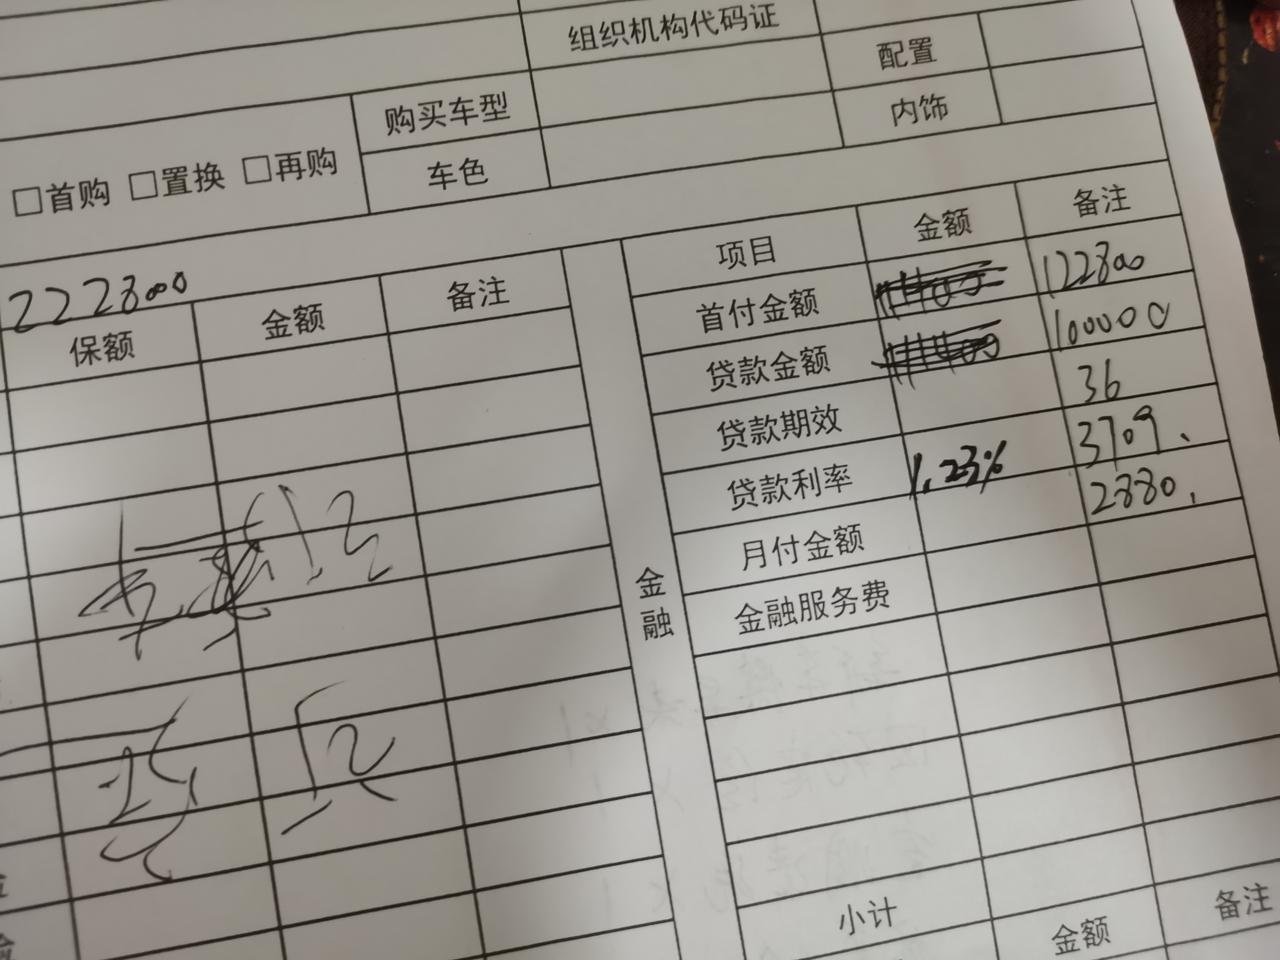 组织机构代码证
配置
购买车型
内饰
□首购 □置换 □再购
车色
222800
项目 金额 备注
保额 金额 备注
首付金额 122800
贷款金额 100000
贷款期效 36
贷款利率 1.23% 3709
月付金额 2880
金融服务费
金融
小计
金额 备注